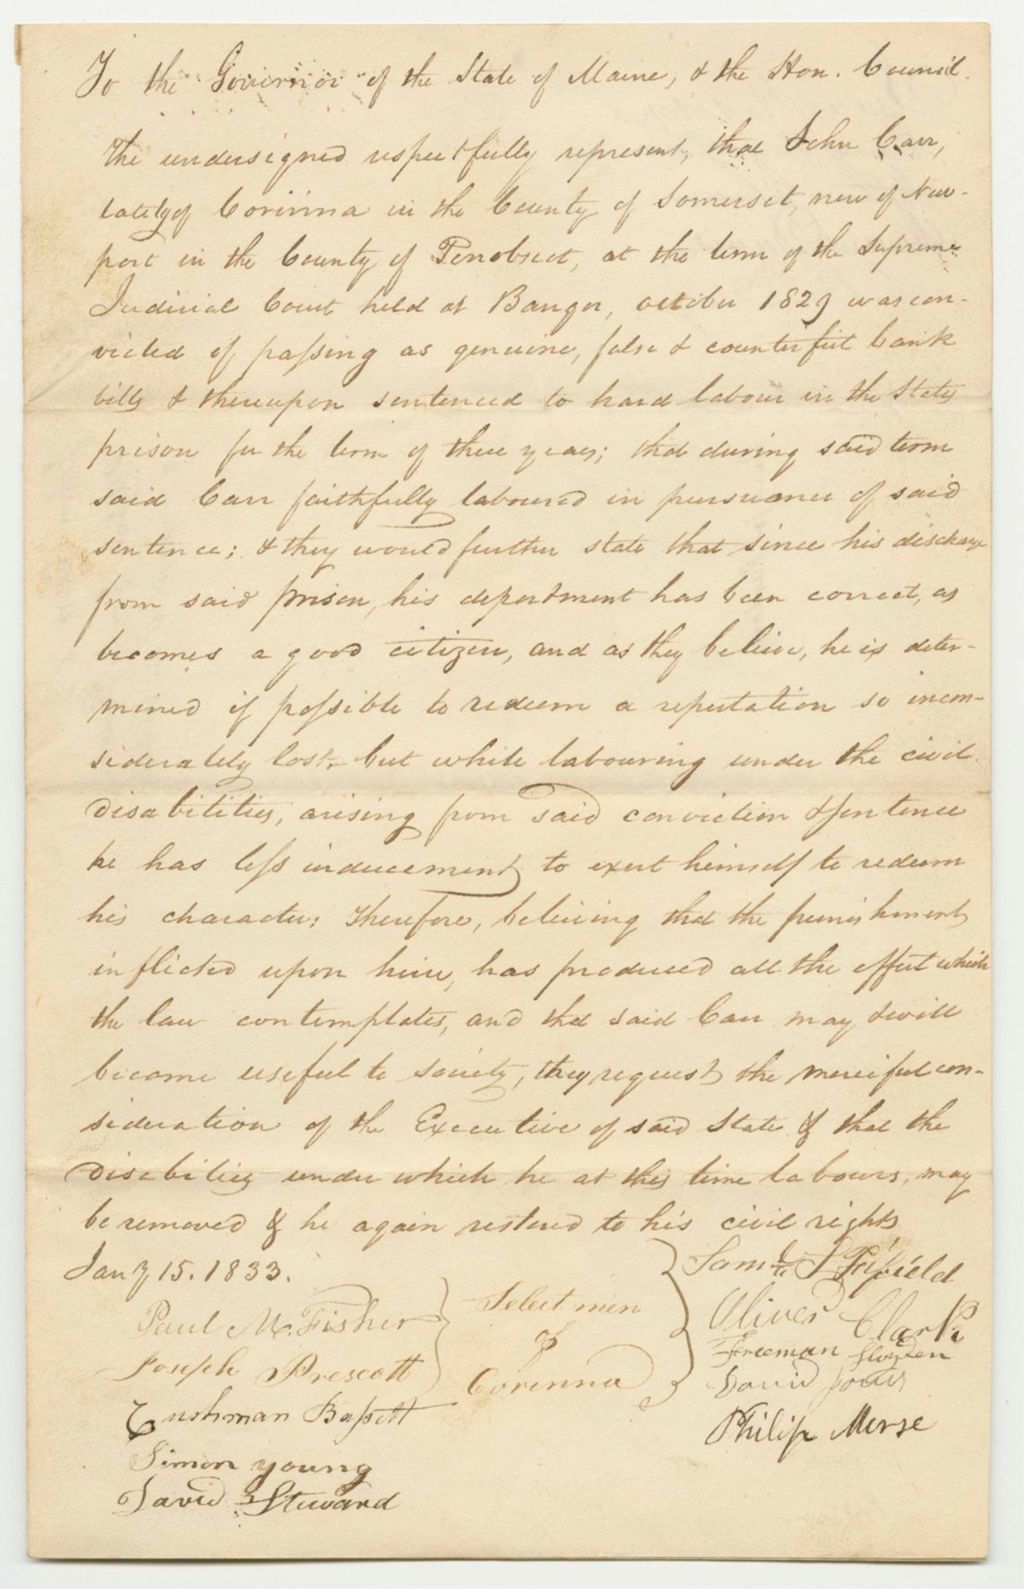 To the Governor of the State of Maine, & the Hon. Council.
The undersigned respectfully represent, that John Carr,
lately of Corinna in the County of Somerset, now of New-
port in the County of Penobscot, at the term of the Supreme
Judicial Court held at Bangor, october 1829 was con-
victed of passing as genuine, false & counterfeit bank
bills & thereupon sentenced to hard labour in the States
prison for the term of three years; that during said term
said Carr faithfully laboured in pursuance of said
sentence; & they would further state that since his discharge
from said prison, his deportment has been correct, as
becomes a good citizen, and as they believe, he is deter-
mined if possible to redeem a reputation so incon-
siderately lost, but while labouring under the civil
disabilities, arising from said conviction & sentence
he has less inducement to exert himself to redeem
his character; Therefore, believing that the punishment
inflicted upon him, has produced all the effect which
the law contemplates, and that said Carr may & will
become useful to society, they request the merciful con-
sideration of the Executive of said State & that the
disability under which he at this time labours, may
be removed & he again restored to his civil rights
Jany 15. 1833.
Paul M. Fisher
Joseph Prescott
Select men
of
Corinna
Cushman Bassett
Simon Young
David Steward
Saml. Fifield
Oliver Clark
Freeman
David
Philip Morse